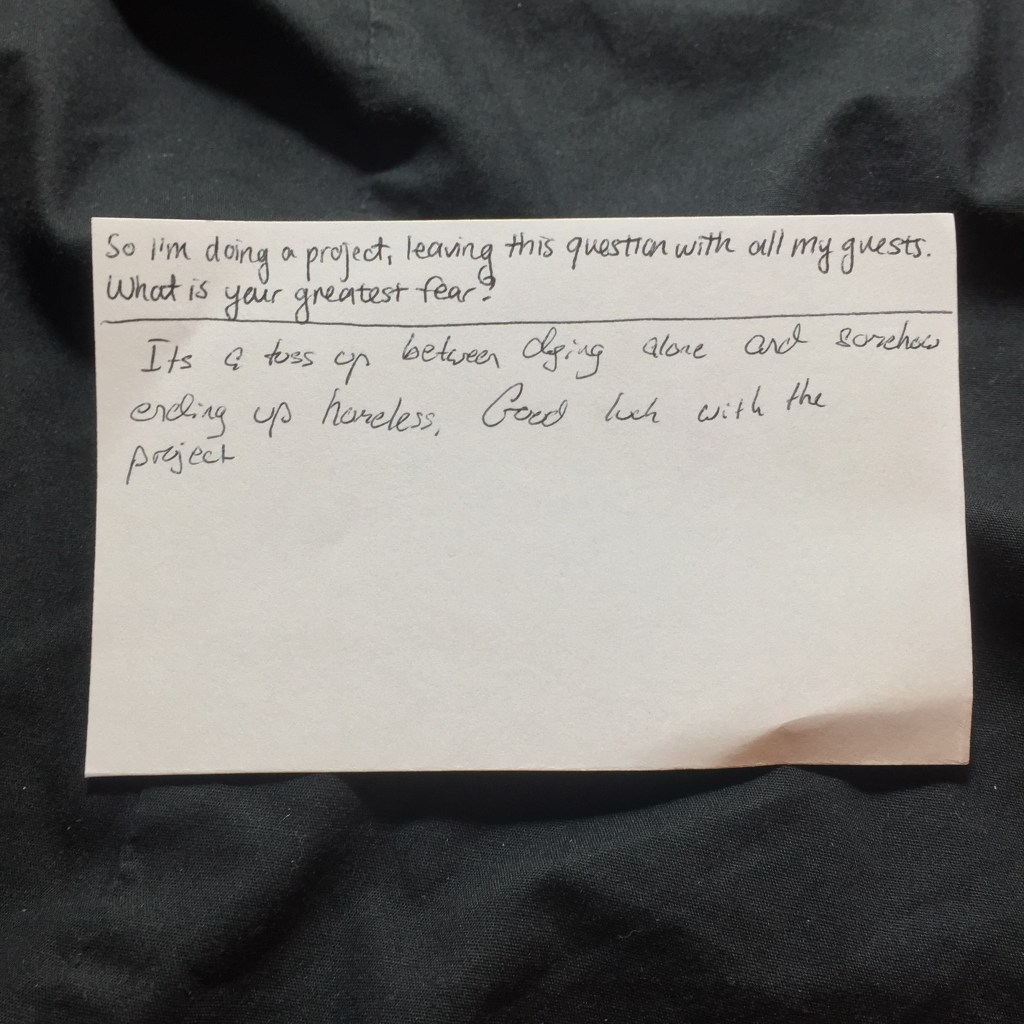 So I'm doing a project, leaving this question with all my guests.
What is your greatest fear?
Its a toss up between dying alone and somehow
ending up homeless. Good luck with the
project